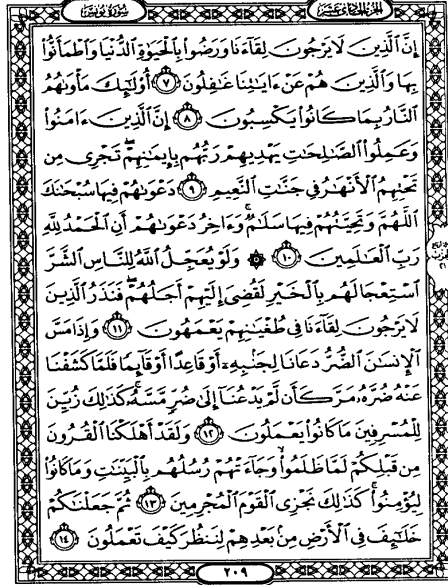 الجزء الحادي عشر سورة يونس
إِنَّ الَّذِينَ لَا يَرْجُونَ لِقَاءَنَا وَرَضُوا بِالْحَيَوٰةِ الدُّنْيَا وَاطْمَأَنُّوا
بِهَا وَالَّذِينَ هُمْ عَنْ ءَايَٰتِنَا غَٰفِلُونَ ٧ أُو۟لَٰئِكَ مَأْوَىٰهُمُ
النَّارُ بِمَا كَانُوا يَكْسِبُونَ ٨ إِنَّ الَّذِينَ ءَامَنُوا
وَعَمِلُوا الصَّٰلِحَٰتِ يَهْدِيهِمْ رَبُّهُم بِإِيمَٰنِهِمْ تَجْرِى مِن
تَحْتِهِمُ الْأَنْهَٰرُ فِى جَنَّٰتِ النَّعِيمِ ٩ دَعْوَىٰهُمْ فِيهَا سُبْحَٰنَكَ
اللَّهُمَّ وَتَحِيَّتُهُمْ فِيهَا سَلَٰمٌ وَءَاخِرُ دَعْوَىٰهُمْ أَنِ الْحَمْدُ لِلَّهِ
رَبِّ الْعَٰلَمِينَ ١٠ ۞ وَلَوْ يُعَجِّلُ اللَّهُ لِلنَّاسِ الشَّرَّ
اسْتِعْجَالَهُم بِالْخَيْرِ لَقُضِىَ إِلَيْهِمْ أَجَلُهُمْ فَنَذَرُ الَّذِينَ
لَا يَرْجُونَ لِقَاءَنَا فِى طُغْيَٰنِهِمْ يَعْمَهُونَ ١١ وَإِذَا مَسَّ
الْإِنسَٰنَ الضُّرُّ دَعَانَا لِجَنبِهِ أَوْ قَاعِدًا أَوْ قَائِمًا فَلَمَّا كَشَفْنَا
عَنْهُ ضُرَّهُ مَرَّ كَأَن لَّمْ يَدْعُنَا إِلَىٰ ضُرٍّ مَّسَّهُ كَذَٰلِكَ زُيِّنَ
لِلْمُسْرِفِينَ مَا كَانُوا يَعْمَلُونَ ١٢ وَلَقَدْ أَهْلَكْنَا الْقُرُونَ
مِن قَبْلِكُمْ لَمَّا ظَلَمُوا وَجَاءَتْهُمْ رُسُلُهُم بِالْبَيِّنَٰتِ وَمَا كَانُوا
لِيُؤْمِنُوا كَذَٰلِكَ نَجْزِى الْقَوْمَ الْمُجْرِمِينَ ١٣ ثُمَّ جَعَلْنَٰكُمْ
خَلَٰئِفَ فِى الْأَرْضِ مِن بَعْدِهِمْ لِنَنظُرَ كَيْفَ تَعْمَلُونَ ١٤
٢٠٩